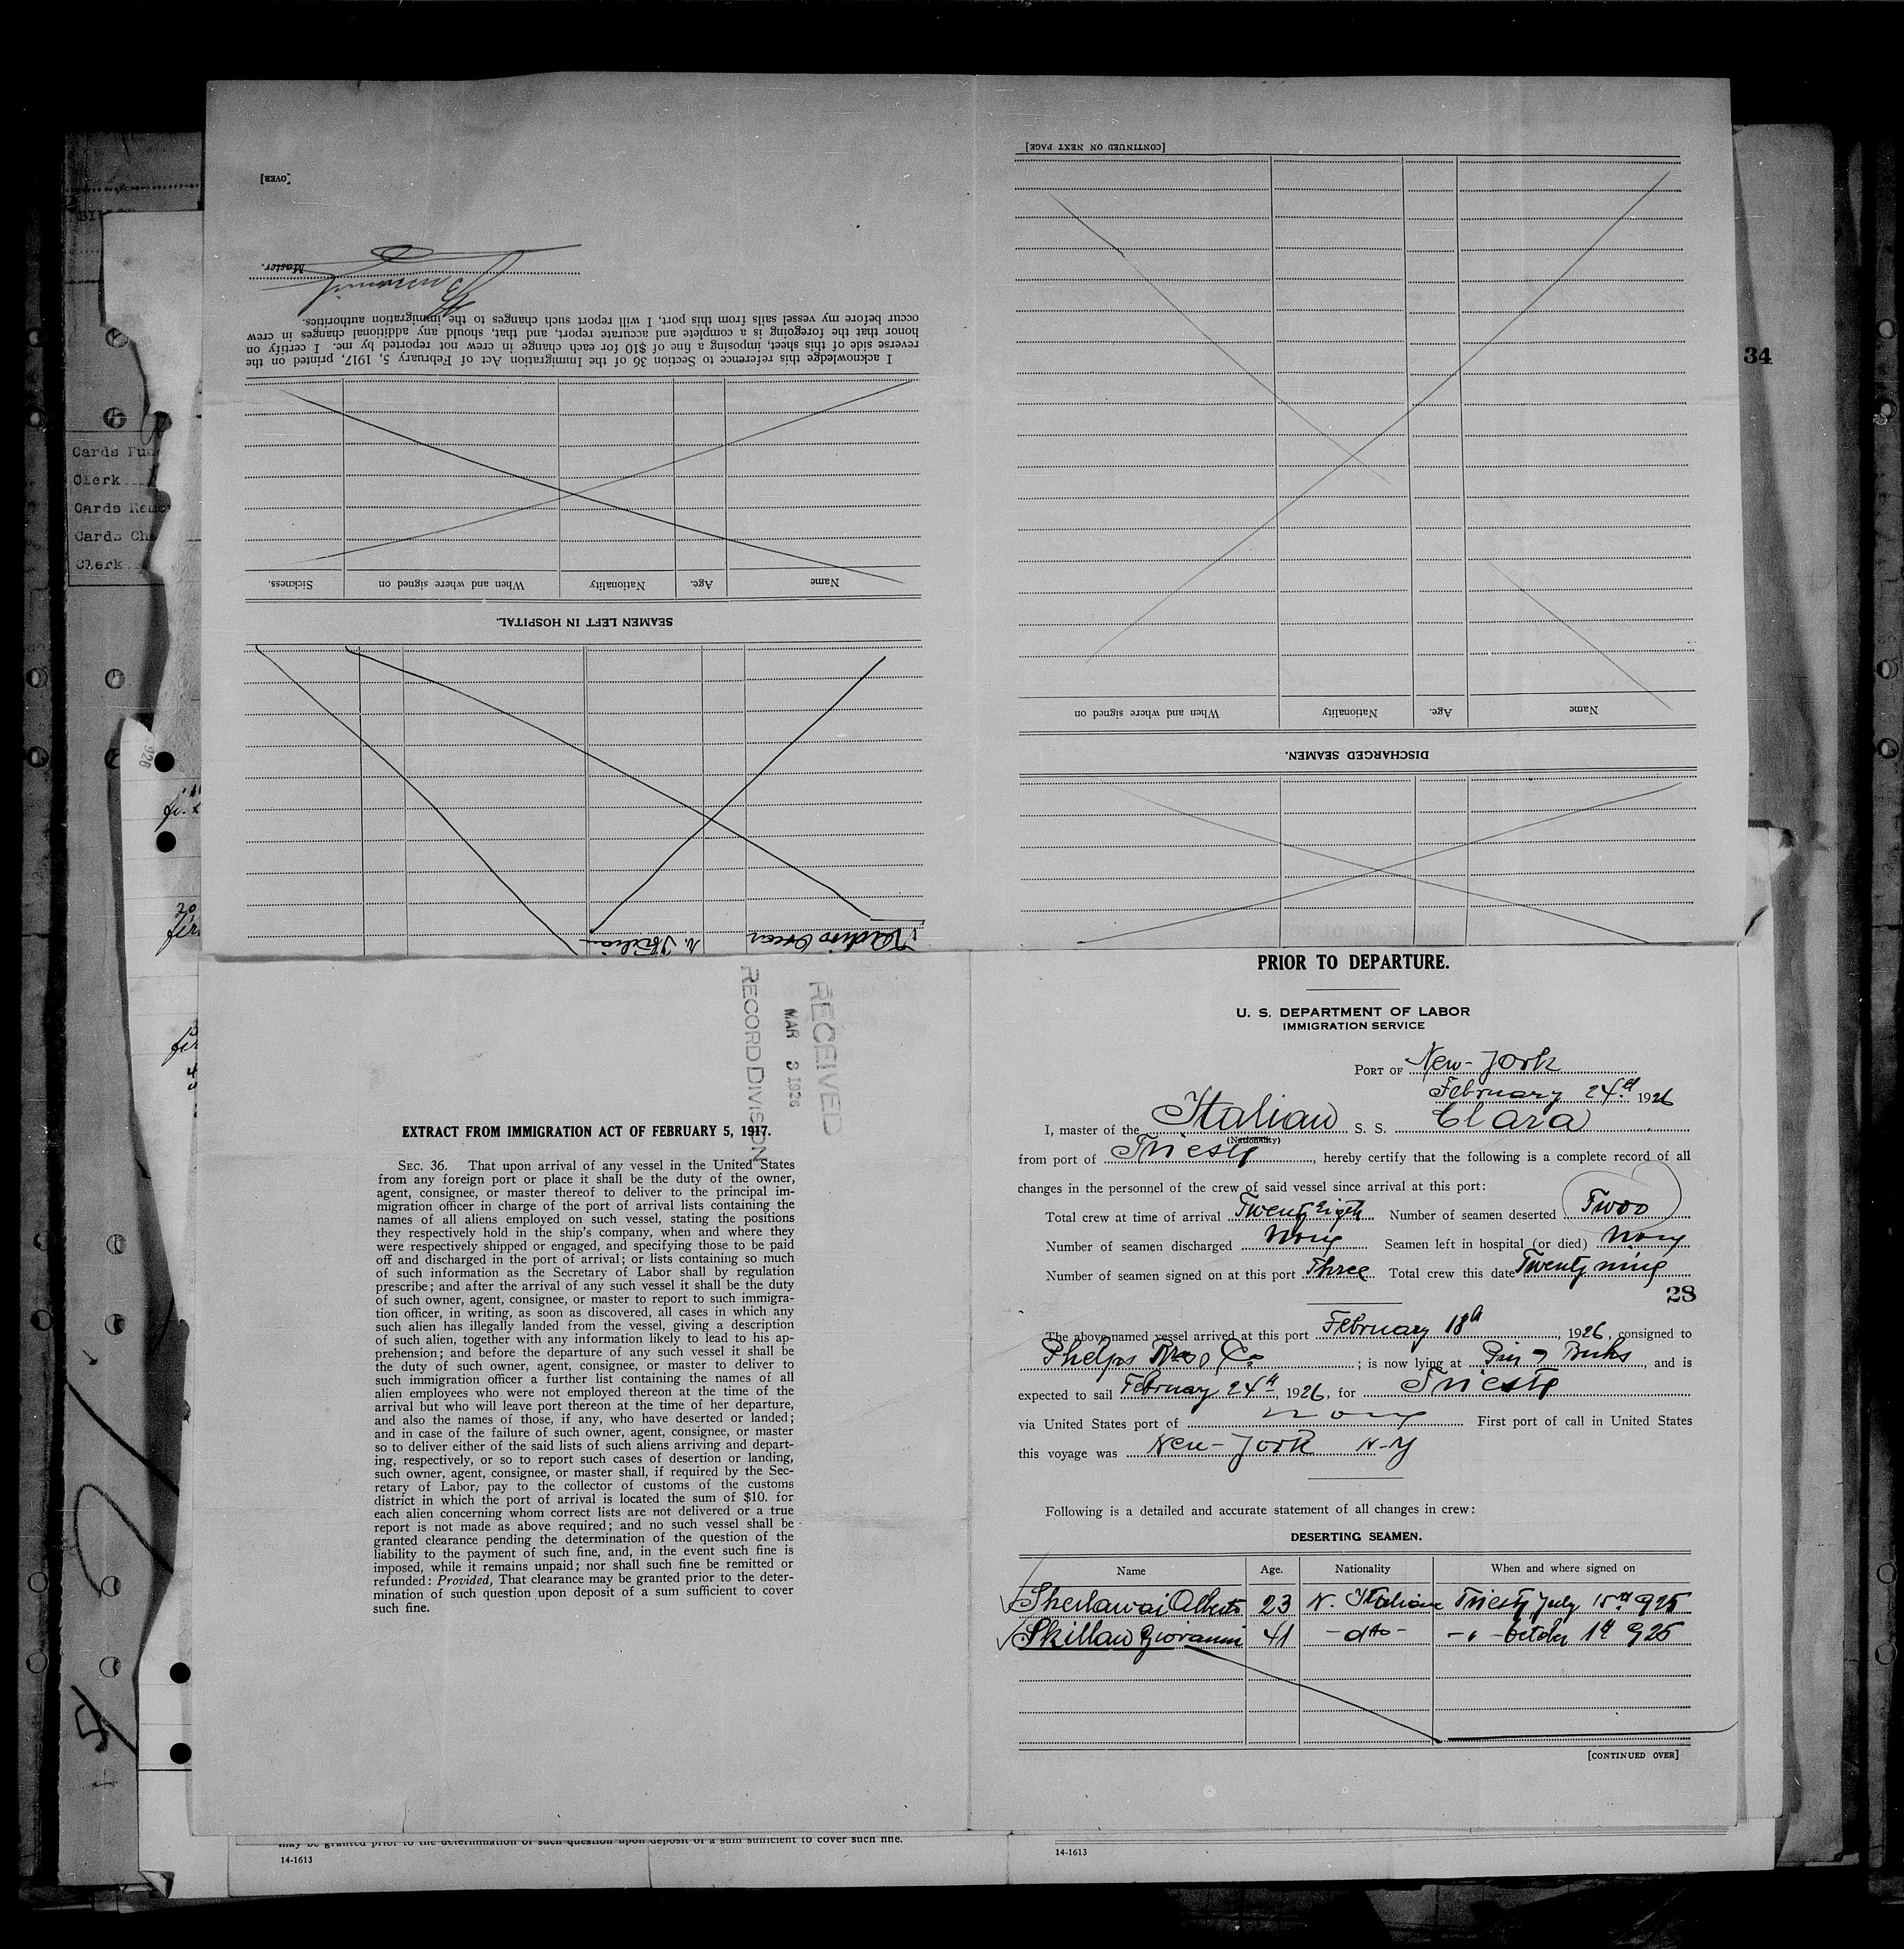 PRIOR TO DEPARTURE.
U. S. DEPARTMENT OF LABOR
IMMIGRATION SERVICE
PORT OF New-York
February 24.d 1926
I, master of the Italian S. S. Clara
(Nationality)
from port of Trieste, hereby certify that the following is a complete record of all
changes in the personnel of the crew of said vessel since arrival at this port:
Total crew at time of arrival Twenty Eigth Number of seamen deserted Twoo
Number of seamen discharged None Seamen left in hospital (or died) None
Number of seamen signed on at this port Three Total crew this date Twenty nine
28
The above-named vessel arrived at this port February 18th, 1926, consigned to
Phelps Bros Co; is now lying at Pier 7 Buks, and is
expected to sail February 24th, 1926, for Trieste
via United States port of none First port of call in United States
this voyage was New-York N-Y
Following is a detailed and accurate statement of all changes in crew:
DESERTING SEAMEN.
Name Age. Nationality When and where signed on
Alberto 23 N. Italian Trieste July 15th 925
Skillan Giovanni 41 -dto- -"- October 1st 925
[CONTINUED OVER]
EXTRACT FROM IMMIGRATION ACT OF FEBRUARY 5, 1917.
SEC. 36. That upon arrival of any vessel in the United States
from any foreign port or place it shall be the duty of the owner,
agent, consignee, or master thereof to deliver to the principal im-
migration officer in charge of the port of arrival lists containing the
names of all aliens employed on such vessel, stating the positions
they respectively hold in the ship's company, when and where they
were respectively shipped or engaged, and specifying those to be paid
off and discharged in the port of arrival; or lists containing so much
of such information as the Secretary of Labor shall by regulation
prescribe; and after the arrival of any such vessel it shall be the duty
of such owner, agent, consignee, or master to report to such immigra-
tion officer, in writing, as soon as discovered, all cases in which any
such alien has illegally landed from the vessel, giving a description
of such alien, together with any information likely to lead to his ap-
prehension; and before the departure of any such vessel it shall be
the duty of such owner, agent, consignee, or master to deliver to
such immigration officer a further list containing the names of all
alien employees who were not employed thereon at the time of the
arrival but who will leave port thereon at the time of her departure,
and also the names of those, if any, who have deserted or landed;
and in case of the failure of such owner, agent, consignee, or master
so to deliver either of the said lists of such aliens arriving and depart-
ing, respectively, or so to report such cases of desertion or landing,
such owner, agent, consignee, or master shall, if required by the Sec-
retary of Labor, pay to the collector of customs of the customs
district in which the port of arrival is located the sum of $10. for
each alien concerning whom correct lists are not delivered or a true
report is not made as above required; and no such vessel shall be
granted clearance pending the determination of the question of the
liability to the payment of such fine, and, in the event such fine is
imposed, while it remains unpaid; nor shall such fine be remitted or
refunded: Provided, That clearance may be granted prior to the deter-
mination of such question upon deposit of a sum sufficient to cover
such fine.
RECEIVED
MAR 3 1926
RECORD DIVISION
DISCHARGED SEAMEN.
Name Age. Nationality When and where signed on
[CONTINUED ON NEXT PAGE]
N. Italian
SEAMEN LEFT IN HOSPITAL.
Name Age. Nationality When and where signed on Sickness.
I acknowledge this reference to Section 36 of the Immigration Act of February 5, 1917, printed on the
reverse side of this sheet, imposing a fine of $10 for each change in crew not reported by me. I certify on
honor that the foregoing is a complete and accurate report, and that, should any additional changes in crew
occur before my vessel sails from this port, I will report such changes to the immigration authorities.
Master.
[OVER]
34
Cards
Clerk
Cards
Cards
Clerk
may be granted prior to the determination of such question upon deposit of a sum sufficient to cover such fine.
14-1613
14-1613